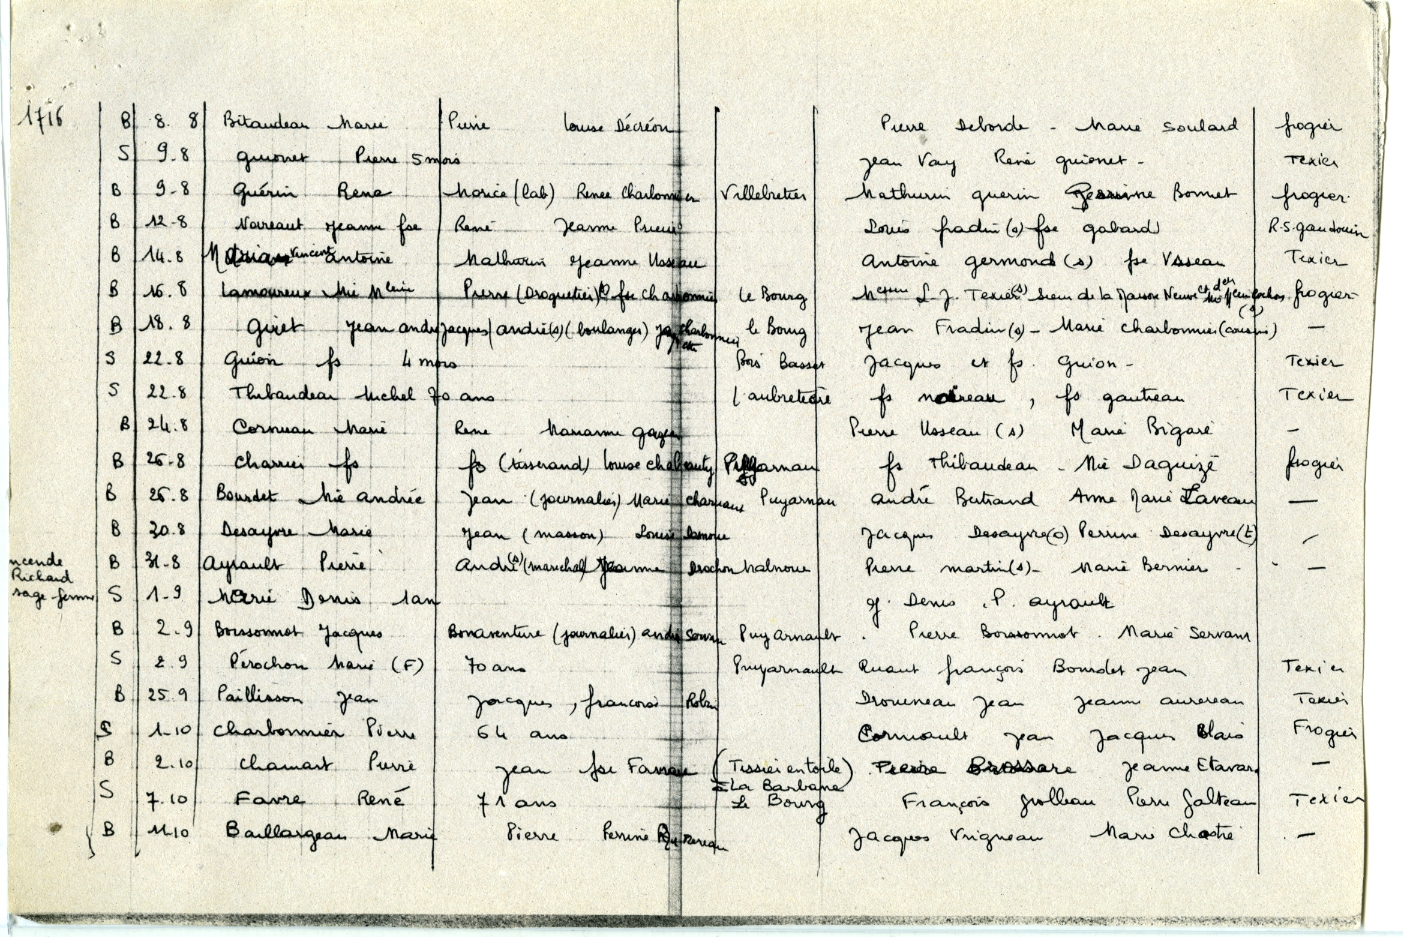 1716 B 8. 8 Bitaudeau Marie Pierre Louise Décréon Pierre Deborde - Marie Soulard frogier
S 9-8 guionet Pierre 5 mois Jean Vay René guionet - Texier
B 9-8 Guérin Rene (lab) Renee Charbonnier Villebretier Mathurin guerin Bonnet frogier.
B 12-8 Noireaut Jeanne fse René Jeanne Louis fradin (s) fse gabard R.S. gaudouin
B 14.8 Vincent antoine Mathurin Jeanne Usseau Antoine germond (s) fse Usseau Texier
B 16.8 Lamoureux Mie Pierre (Droguetier) fse Charbonnier le Bourg L.J. Texier(s) Sieur de la Maison Neuve frogier
B 18.8 Giret Jean andre Jacques andré(s) (boulanger) Charbonnier le Bourg Jean Fradin(s) - Marie Charbonnier (cousins) (s) —
S 22-8 Guion fs 4 mois Bois Basset Jacques et fs. Guion - Texier
S 22.8 Thibaudeau Michel 70 ans l'aubretière fs noireau, fs gautreau Texier
B 24.8 Corneau Marie Rene Marianne Pierre Usseau (s) Marie Bigaré —
B 26-8 Charrier fs fs (tisserand) Louise fs Thibaudeau - Mie Daguizé frogier
B 26.8 Bourdet Mie andrée Jean (journalier) Marie Puyarnau andré Bertrand Anne Marie Laveau —
B 30.8 Desayvre Marie Jean (masson) Louise Jacques Desayvre(o) Perrine Desayvre(t) —
B 31-8 Ayrault Pierre André(s) (marechal) Jeanne Drochon Malnoue Pierre martin(s) - Marie Bernier - —
ncende
Richard
sage-femme
S 1-9 Denis 1 an J. Denis . P. ayrault
B 2.9 Boissonnot Jacques Bonaventure (journalier) Puy Arnault . Pierre Boissonnot . Marie Servant
S 2.9 Pérochon Marie (F) 70 ans Puyarnault françois Bourdet Jean Texier
B 25.9 Paillisson Jean Jacques, françoise Robin Drouneau Jean Jeanne Texier
S 1-10 Charbonnier Pierre 64 ans Jean Jacques Blais Frogier
B 2.10 Chamart Pierre Jean fse (Tissier en toile) Brossare Jeanne —
= La Barbane
S 7.10 Favre René 71 ans Le Bourg François Pierre Texier
B 11.10 Baillargeau Marie Pierre Perrine Jacques Vrigneau Marie —